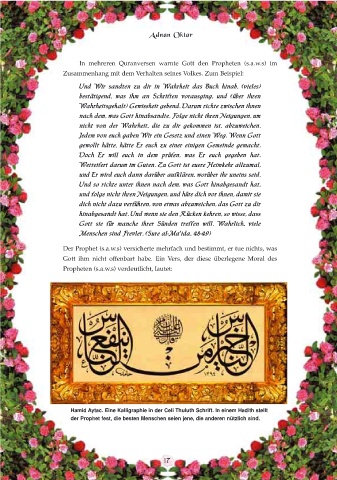 Adnan Oktar
In mehreren Quranversen warnte Gott den Propheten (s.a.w.s) im
Zusammenhang mit dem Verhalten seines Volkes. Zum Beispiel:
Und Wir sandten zu dir in Wahrheit das Buch hinab, (vieles)
bestätigend, was ihm an Schriften vorausging, und (über ihren
Wahrheitsgehalt) Gewissheit gebend. Darum richte zwischen ihnen
nach dem, was Gott hinabsandte. Folge nicht ihren Neigungen, um
nicht von der Wahrheit, die zu dir gekommen ist, abzuweichen.
Jedem von euch gaben Wir ein Gesetz und einen Weg. Wenn Gott
gewollt hätte, hätte Er euch zu einer einigen Gemeinde gemacht.
Doch Er will euch in dem prüfen, was Er euch gegeben hat.
Wetteifert darum im Guten. Zu Gott ist euere Heimkehr allzumal,
und Er wird euch dann darüber aufklären, worüber ihr uneins seid.
Und so richte unter ihnen nach dem, was Gott hinabgesandt hat,
und folge nicht ihren Neigungen, und hüte dich vor ihnen, damit sie
dich nicht dazu verführen, von etwas abzuweichen, das Gott zu dir
hinabgesandt hat. Und wenn sie den Rücken kehren, so wisse, dass
Gott sie für manche ihrer Sünden treffen will. Wahrlich, viele
Menschen sind Frevler. (Sure al-Ma'ida, 48-49)
Der Prophet (s.a.w.s) versicherte mehrfach und bestimmt, er tue nichts, was
Gott ihm nicht offenbart habe. Ein Vers, der diese überlegene Moral des
Propheten (s.a.w.s) verdeutlicht, lautet:
خير الناس من ينفع الناس
Hamid Aytac. Eine Kalligraphie in der Celi Thuluth Schrift. In einem Hedith stellt
der Prophet fest, die besten Menschen seien jene, die anderen nützlich sind.
17